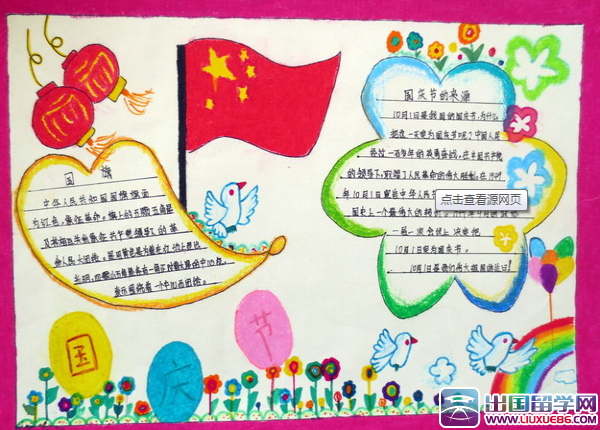 国旗
中华人民共和国国旗旗面
为红色，象征革命。旗上的五颗五角星
及其相互关系象征共产党领导下的革
命人民大团结。星用黄色是为着在红地上显出
光明，四颗小五角星各有一尖正对着大星的中心点，
表示围绕着一个中心而团结。
国庆节的来源
10月1日是我国的国庆节，为什么
把这一天定为国庆节呢？中国人民
经过一百多年的英勇奋战，在中国共产党
的领导下，取得了人民革命的伟大胜利。在1949
年10月1日宣告中华人民共
点击查看源网页
国史上一个最伟大的转
一届一次会议上决定把
10月1日定为国庆节。
10月1日是我们伟大祖国的生日！
国庆节
出国留学网
WWW.LIUXUE86.COM